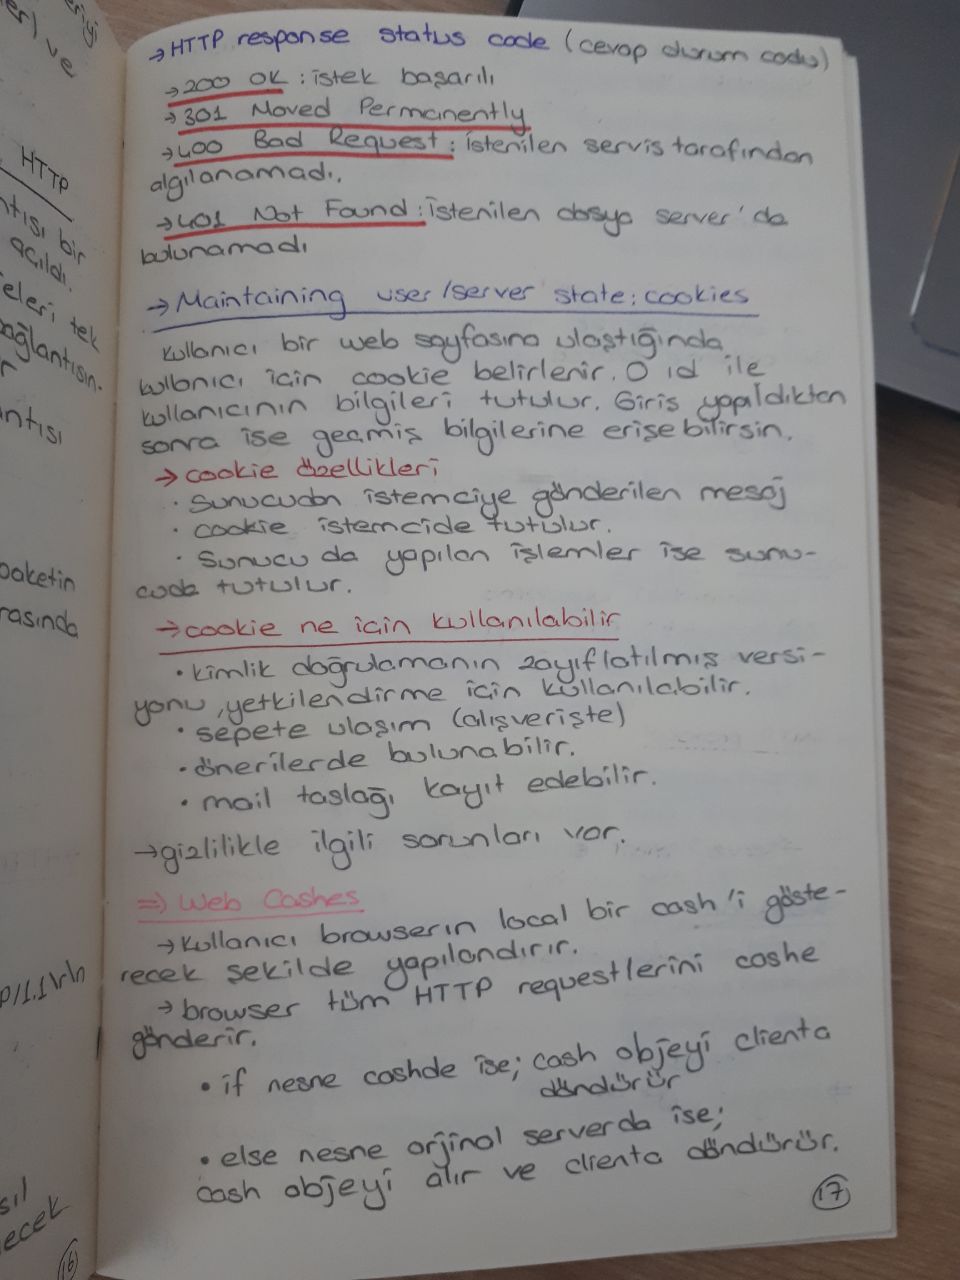 eriyi
er) ve
HTTP
ntısı bir
açıldı.
eleri tek
bağlantısın.
r
ntısı
paketin
rasında
p/1.1\r\n
sıl
ecek
16
→HTTP response status code (cevap durum codu)
→200 OK : istek başarılı
→301 Moved Permanently
→400 Bad Request : istenilen servis tarafından
algılanamadı.
→401 Not Found : istenilen dosya server'da
bulunamadı
→Maintaining user/server state: cookies
Kullanıcı bir web sayfasına ulaştığında
kullanıcı için cookie belirlenir. O id ile
kullanıcının bilgileri tutulur. Giriş yapıldıktan
sonra ise geçmiş bilgilerine erişebilirsin.
→ cookie özellikleri
• Sunucudan istemciye gönderilen mesaj
• cookie istemcide tutulur.
• Sunucu da yapılan işlemler ise sunu-
cuda tutulur.
→cookie ne için kullanılabilir
• kimlik doğrulamanın zayıflatılmış versi-
yonu, yetkilendirme için kullanılabilir.
• sepete ulaşım (alışverişte)
• önerilerde bulunabilir.
• mail taslağı kayıt edebilir.
→gizlilikle ilgili sorunları var.
⇒ Web Cashes
→Kullanıcı browserın local bir cash'i göste-
recek şekilde yapılandırır.
→ browser tüm HTTP requestlerini cashe
gönderir.
• if nesne cashde ise; cash objeyi clienta
döndürür
• else nesne orjinal serverda ise;
cash objeyi alır ve clienta döndürür.
17